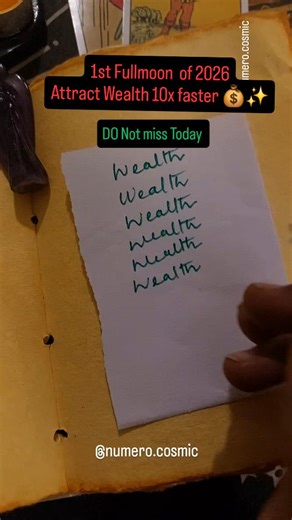 numero.cosmic
1st Fullmoon of 2026
Attract Wealth 10x faster 💰✨
DO Not miss Today
Wealth
Wealth
Wealth
Wealth
Wealth
Wealth
@numero.cosmic